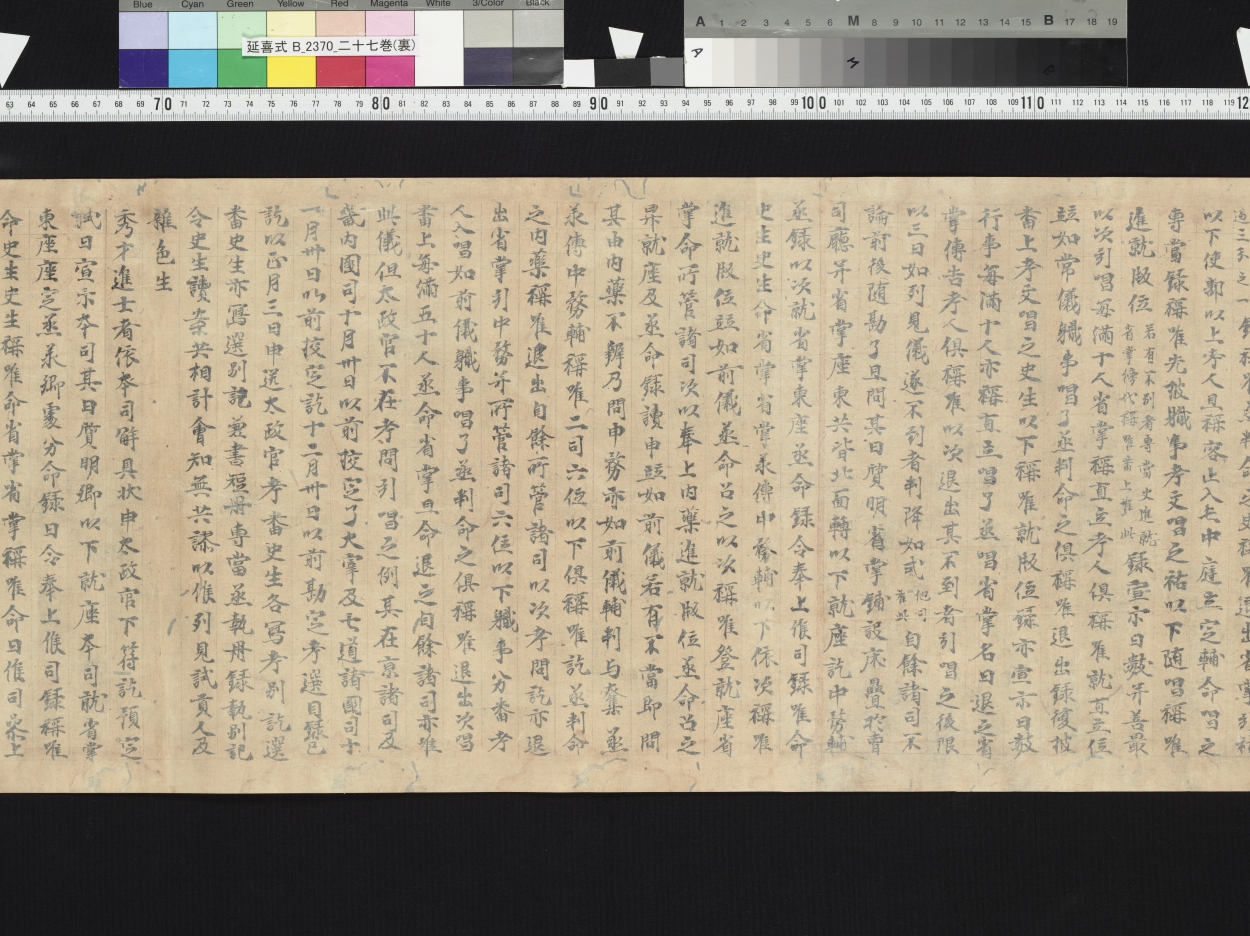 Blue Cyan Green Yellow Red Magenta White 3/Color Black
延喜式 B_2370_二十七巻(裏)
A 1 2 3 4 5 6 M 8 9 10 11 12 13 14 15 B 17 18 19
63 64 65 66 67 68 69 70 71 72 73 74 75 76 77 78 79 80 81 82 83 84 85 86 87 88 89 90 91 92 93 94 95 96 97 98 99 100 101 102 103 104 105 106 107 108 109 110 111 112 113 114 115 116 117 118 119 12
以下使部以上考人且稱容止入立中庭立定輔命唱之
專當録稱唯先披職事考文唱之祐以下随唱稱唯
進就版位
若有不到者專當史進就
省掌傍代稱唯番上准此
録宣示日數并善最
以次引唱每滿十人省掌稱直立考人俱稱唯就直立位
竝如常儀職事唱了丞判命之俱稱唯退出録復披
番上考文唱之史生以下稱唯就版位録亦宣示日數
行事每滿十人亦稱直立唱了丞唱省掌名曰退之省
掌傳告考人俱稱唯以次退出其不到者引唱之後限
以三日如列見儀遂不到者判降如式
他司
准此
自餘諸司不
論前後随勘了且問其日質明省掌鋪設床疊於曹
司廳并省掌座東共皆北面轉以下就座訖中務輔
丞録以次就省掌東座丞命録令奉上倠司録唯命
史生史生命省掌省掌承傳中務輔以下依次稱唯
進就版位竝如前儀丞命召之以次稱唯登就座省
掌命所管諸司次以奉上内藥進就版位丞命召之
昇就座及丞命録讀申竝如前儀若有不當即問
其由内藥不辨乃問中務亦如前儀輔判与奪丞
承傳中務輔稱唯二司六位以下俱稱唯訖丞判命
之内藥稱唯退出自餘所管諸司以次考問訖亦退
出省掌引中務并所管諸司六位以下職事分番考
人入唱如前儀職事唱了丞判命之俱稱唯退出次唱
番上每滿五十人丞命省掌且命退之自餘諸司亦准
此儀但太政官不在考問引唱之例其在京諸司及
畿内國司十月卅日以前挍定了大宰及七道諸國司十
一月卅日以前挍定訖十二月卅日以前勘定考選目録已
訖以正月三日申送太政官考番史生各寫考別訖選
番史生亦寫選別記竝書短冊專當丞執冊録執別記
令史生讀案共相計會知無共謬以倠列見試貢人及
雜色生
秀才進士者依本司解具状申太政官下符訖預定
試日宣示本司其日質明卿以下就座本司就省掌
東座座定丞承卿處分命録曰令奉上倠司録稱唯
命史生史生稱唯命省掌省掌稱唯命曰倠司奉上